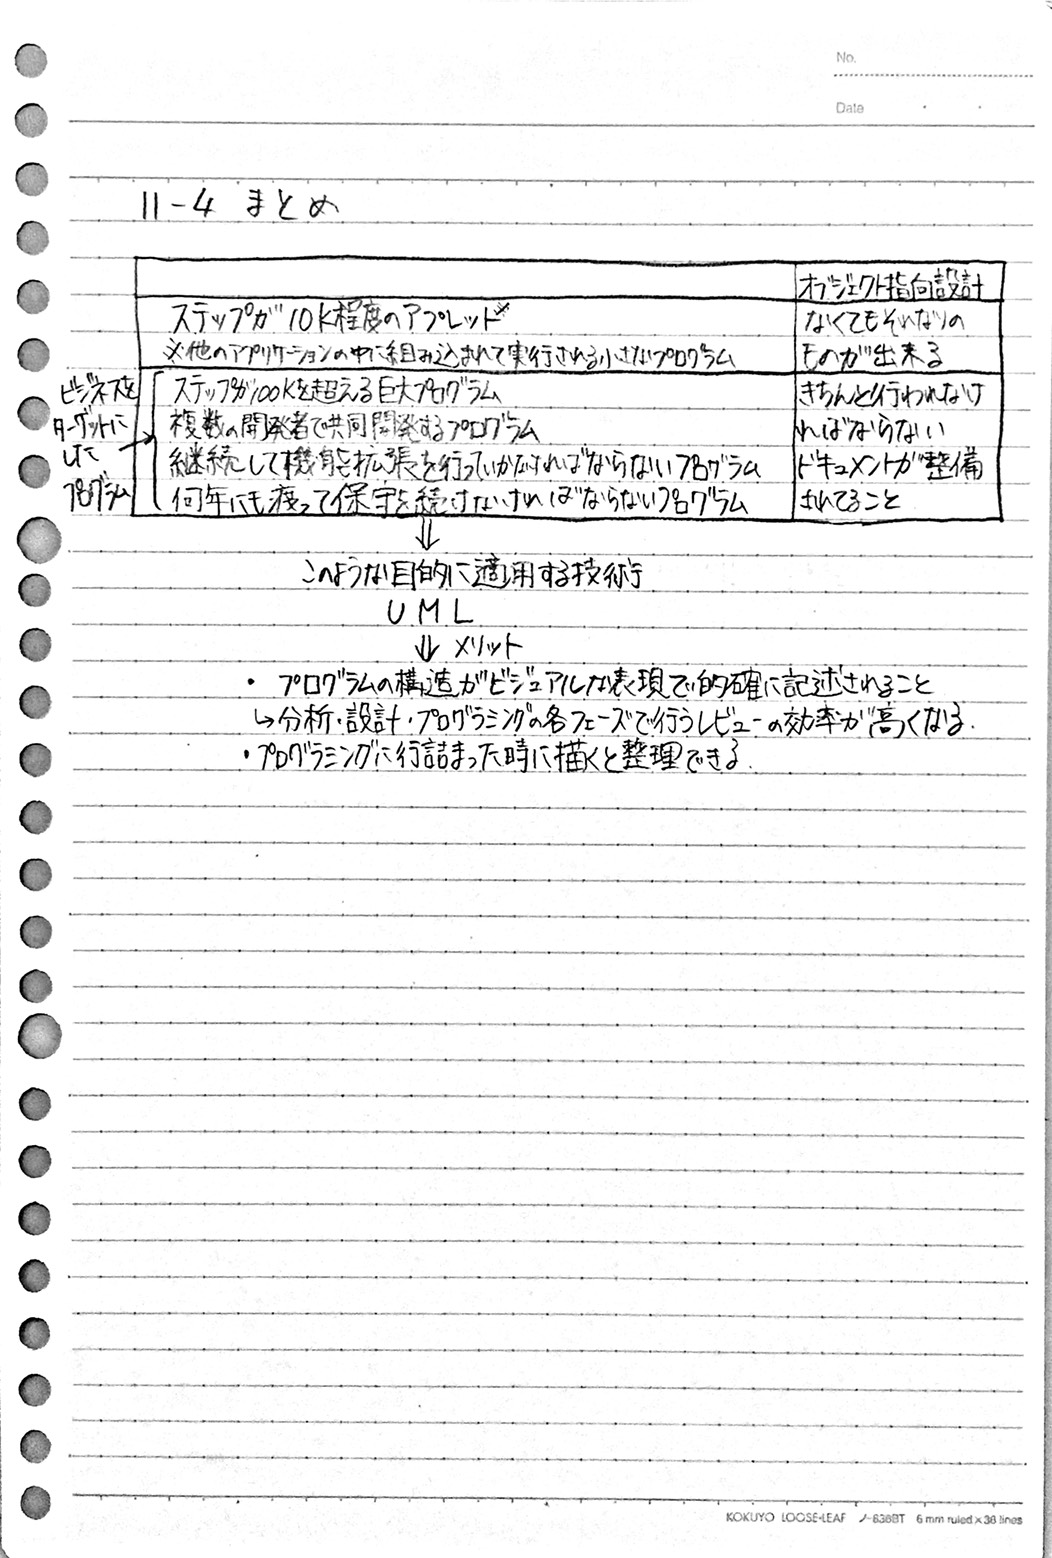 No.
Date
11-4 まとめ
オブジェクト指向設計
ステップが10K程度のアプレッド※
※他のアプリケーションの中に組み込まれて実行される小さなプログラム
なくてもそれなりの
ものが出来る
ビジネスを
ターゲットに
した
プログラム
ステップが100Kを超える巨大プログラム
複数の開発者で共同開発するプログラム
継続して機能拡張を行っていかなければならないプログラム
何年にも渡って保守を続けなければならないプログラム
きちんと行われなけ
ればならない
ドキュメントが整備
されてること
⇓
このような目的に適用する技術
UML
⇓ メリット
・プログラムの構造がビジュアルな表現で的確に記述されること
↳分析・設計・プログラミングの各フェーズで行うレビューの効率が高くなる.
・プログラミングに行詰まった時に描くと整理できる.
KOKUYO LOOSE-LEAF ノ-836BT 6 mm ruled×36 lines